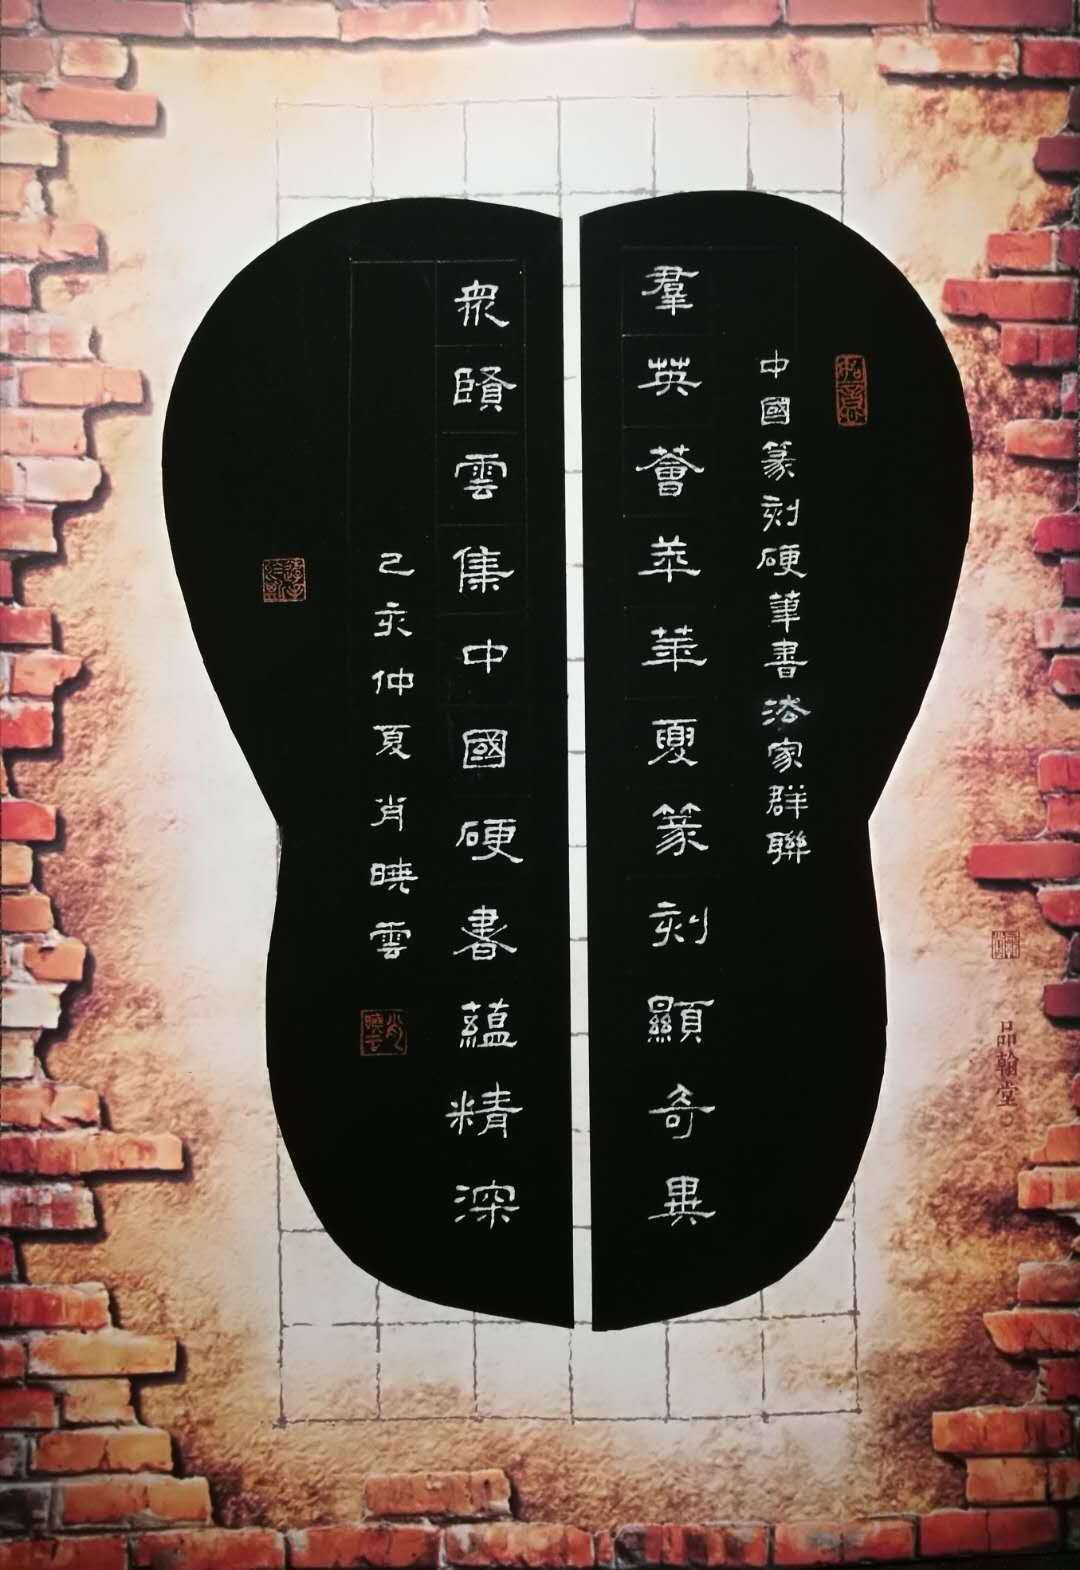 中國篆刻硬筆書法家群聯
羣英薈萃華夏篆刻顯奇異
衆賢雲集中國硬書蘊精深
己亥仲夏肖曉雲
品翰堂